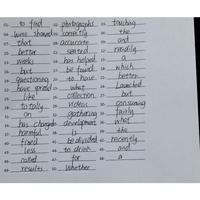 to find
were showed
that
better
weeks
but
questioning
have spread
like
totally
on
has changed
harmful
fixed
less
called
results
photographs
correctly
accurate
seated
has helped
be found
to have
what
collection
videos
gathering
development
is
be divided
to drink
and
whether
touching
the
and
readily
a
which
better
launched
but
consuming
fairly
what
the
recently
is
for
a